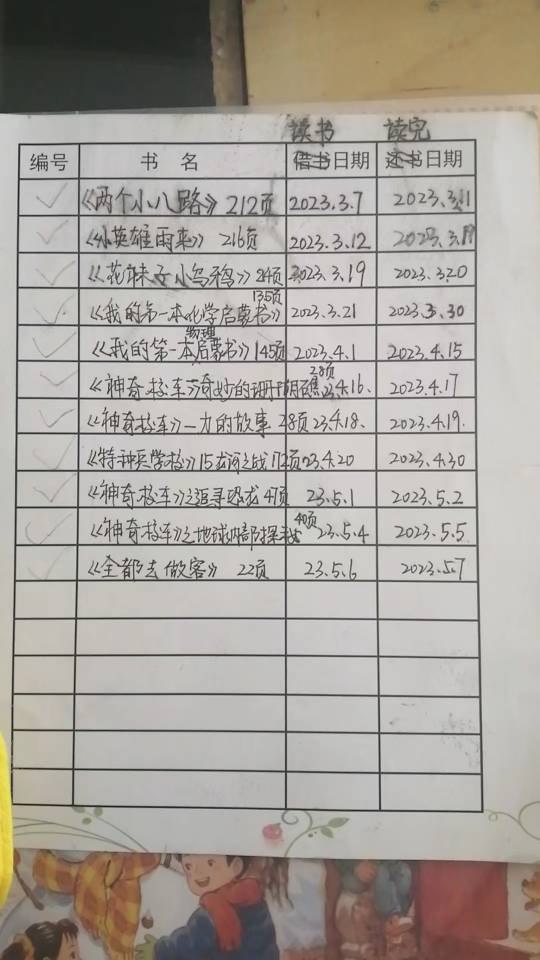 读书 读完
编号 书 名 借书日期 还书日期
《两个小八路》212页 2023.3.7 2023.3.11
《小英雄雨来》216页 2023.3.12 2023.3.19
《花脖子小乌鸦》24页 2023.3.19 2023.3.20
《我的第一本化学启蒙书》135页 2023.3.21 2023.3.30
《我的第一本物理启蒙书》145页 2023.4.1 2023.4.15
《神奇校车》奇妙的珊瑚礁 28页 23.4.16. 2023.4.17
《神奇校车》—力的故事 28页 23.4.18. 2023.4.19.
《特种兵学校》15 172页 23.4.20 2023.4.30
《神奇校车》之追寻恐龙 47页 23.5.1 2023.5.2
《神奇校车》之地球内部探秘 40页 23.5.4 2023.5.5
《全都去做客》 22页 23.5.6 2023.5.7